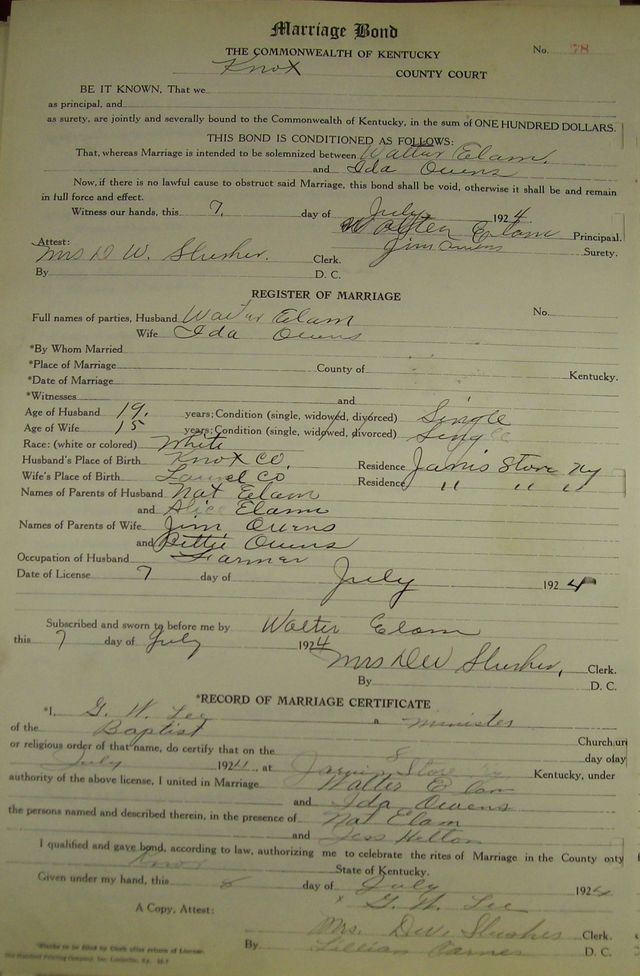 Marriage Bond
No. 78
THE COMMONWEALTH OF KENTUCKY
Knox COUNTY COURT
BE IT KNOWN, That we
as principal, and
as surety, are jointly and severally bound to the Commonwealth of Kentucky, in the sum of ONE HUNDRED DOLLARS.
THIS BOND IS CONDITIONED AS FOLLOWS:
That, whereas Marriage is intended to be solemnized between Walter Elam,
and Ida Owens
Now, if there is no lawful cause to obstruct said Marriage, this bond shall be void, otherwise it shall be and remain
in full force and effect.
Witness our hands, this 7, day of July, 1924.
Walter Elam Principal.
Attest: Jim Owens Surety.
Mrs D W. Slusher. Clerk.
By D. C.
REGISTER OF MARRIAGE
Full names of parties, Husband Walter Elam No.
Wife Ida Owens
*By Whom Married
*Place of Marriage County of Kentucky.
*Date of Marriage
*Witnesses and
Age of Husband 19. years; Condition (single, widowed, divorced) Single
Age of Wife 15 years; Condition (single, widowed, divorced) Single
Race: (white or colored) White
Husband's Place of Birth Knox Co, Residence Jarvis Store Ky
Wife's Place of Birth Laurel Co Residence " " "
Names of Parents of Husband Nat Elam
and Alice Elam
Names of Parents of Wife Jim Owens
and Bettie Owens
Occupation of Husband Farmer
Date of License 7 day of July 1924
Subscribed and sworn to before me by Walter Elam
this 7 day of July 1924
Mrs DW Slusher, Clerk.
By D. C.
*RECORD OF MARRIAGE CERTIFICATE
*I, G. W. Lee a minister
of the Baptist Church or
or religious order of that name, do certify that on the 8 day of
July 1924, at Jarvis Store Ky Kentucky, under
authority of the above license, I united in Marriage Walter Elam
and Ida Owens
the persons named and described therein, in the presence of Nat Elam
and Jess Helton
I qualified and gave bond, according to law, authorizing me to celebrate the rites of Marriage in the County only
Knox State of Kentucky.
Given under my hand, this 8 day of July 1924
G. W. Lee
A Copy, Attest:
Mrs. DW Slusher Clerk.
*Blanks to be filled by Clerk after return of License. By Lillian D. C.